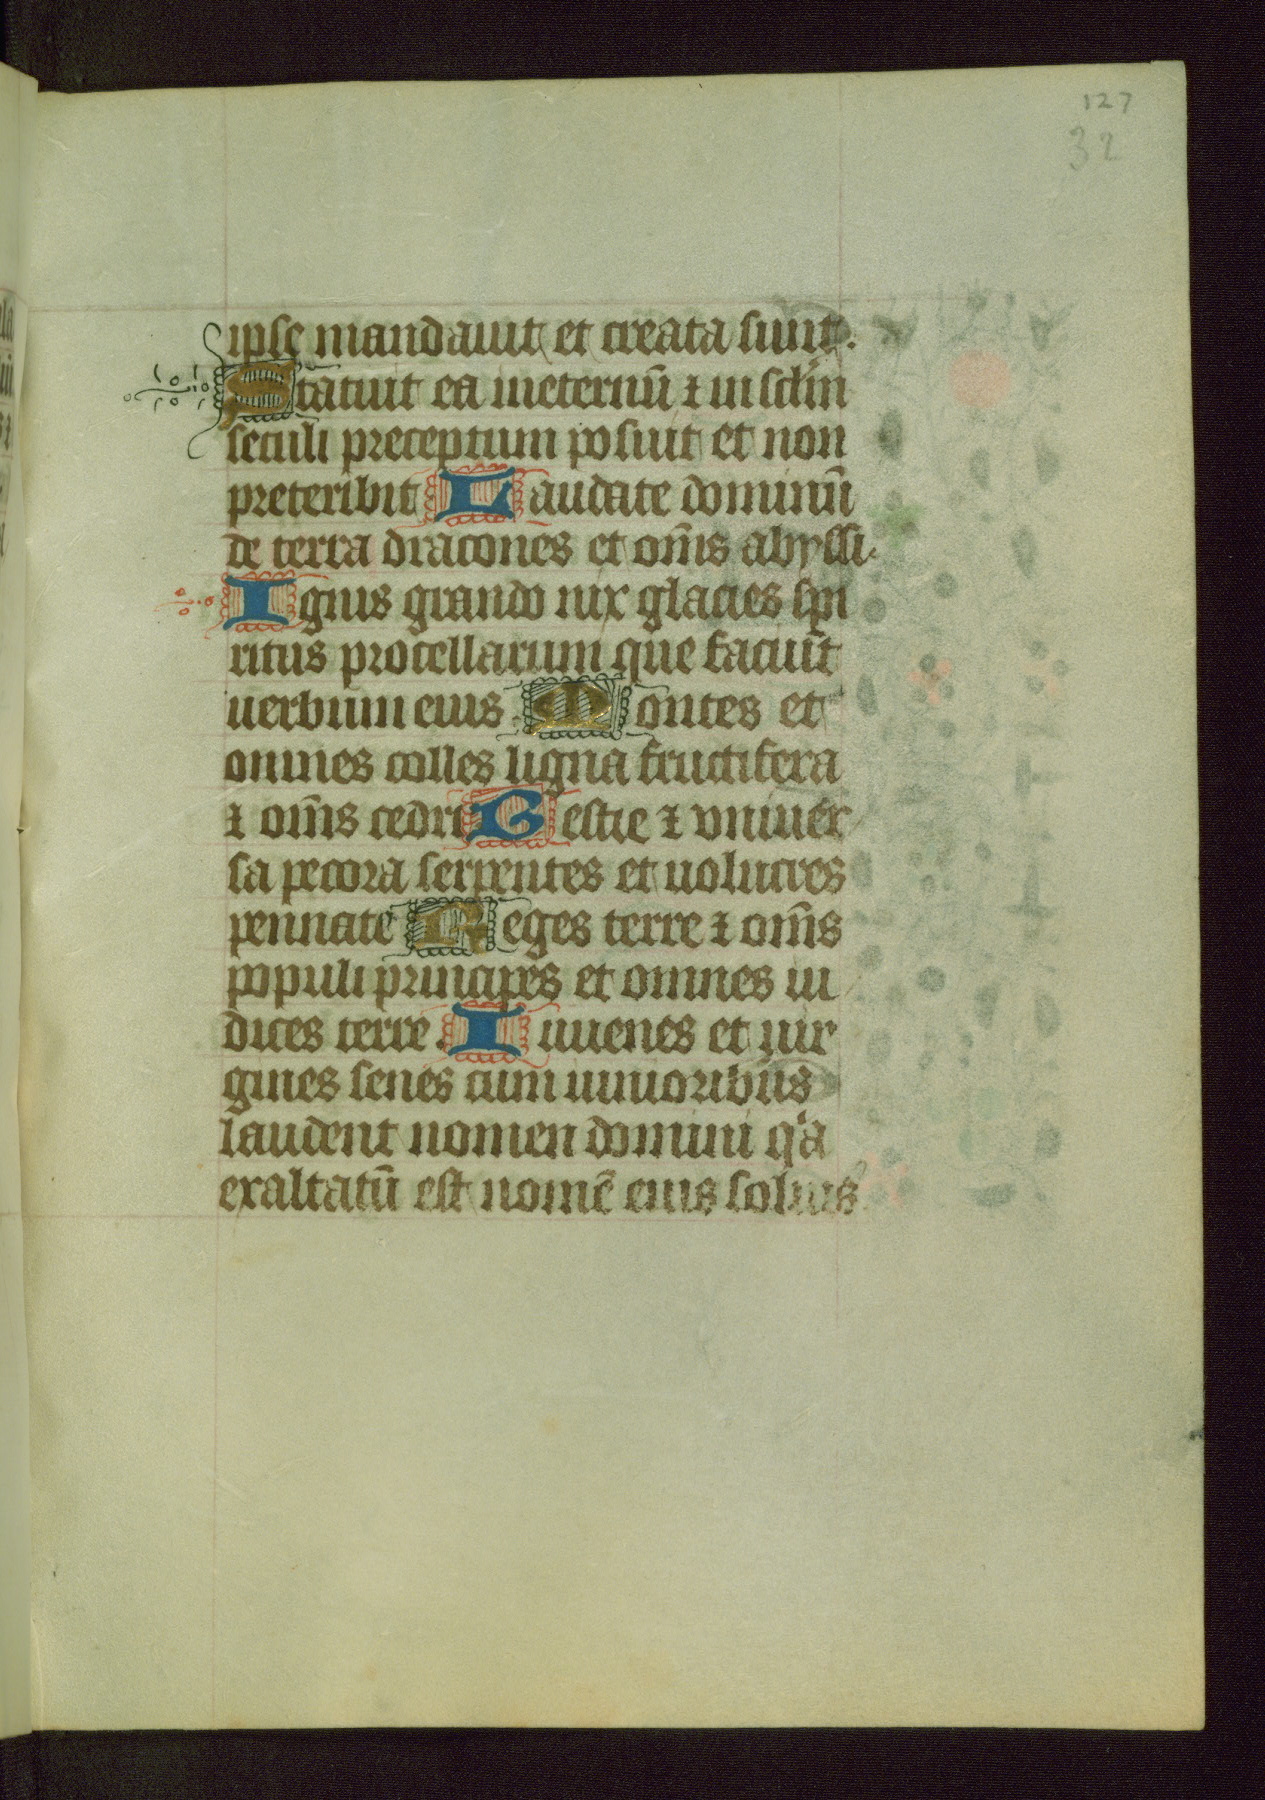 127
32
ipse mandauit et creata sunt.
Statuit ea ineternū ⁊ in sclm̄
seculi preceptum posuit et non
preteribit Laudate dominū
de terra dracones et om̄s abyssi.
Ignis grando nix glacies spi
ritus procellarum que faciūt
uerbum eius Montes et
omnes colles ligna fructifera
⁊ om̄s cedri Bestie ⁊ vniuer
sa pecora serpentes et uolucres
pennate Reges terre ⁊ om̄s
populi principes et omnes iu
dices terre. Iuuenes et uir
gines senes cum iunioribus
laudent nomen domini qͥa
exaltatū est nomē eius solius